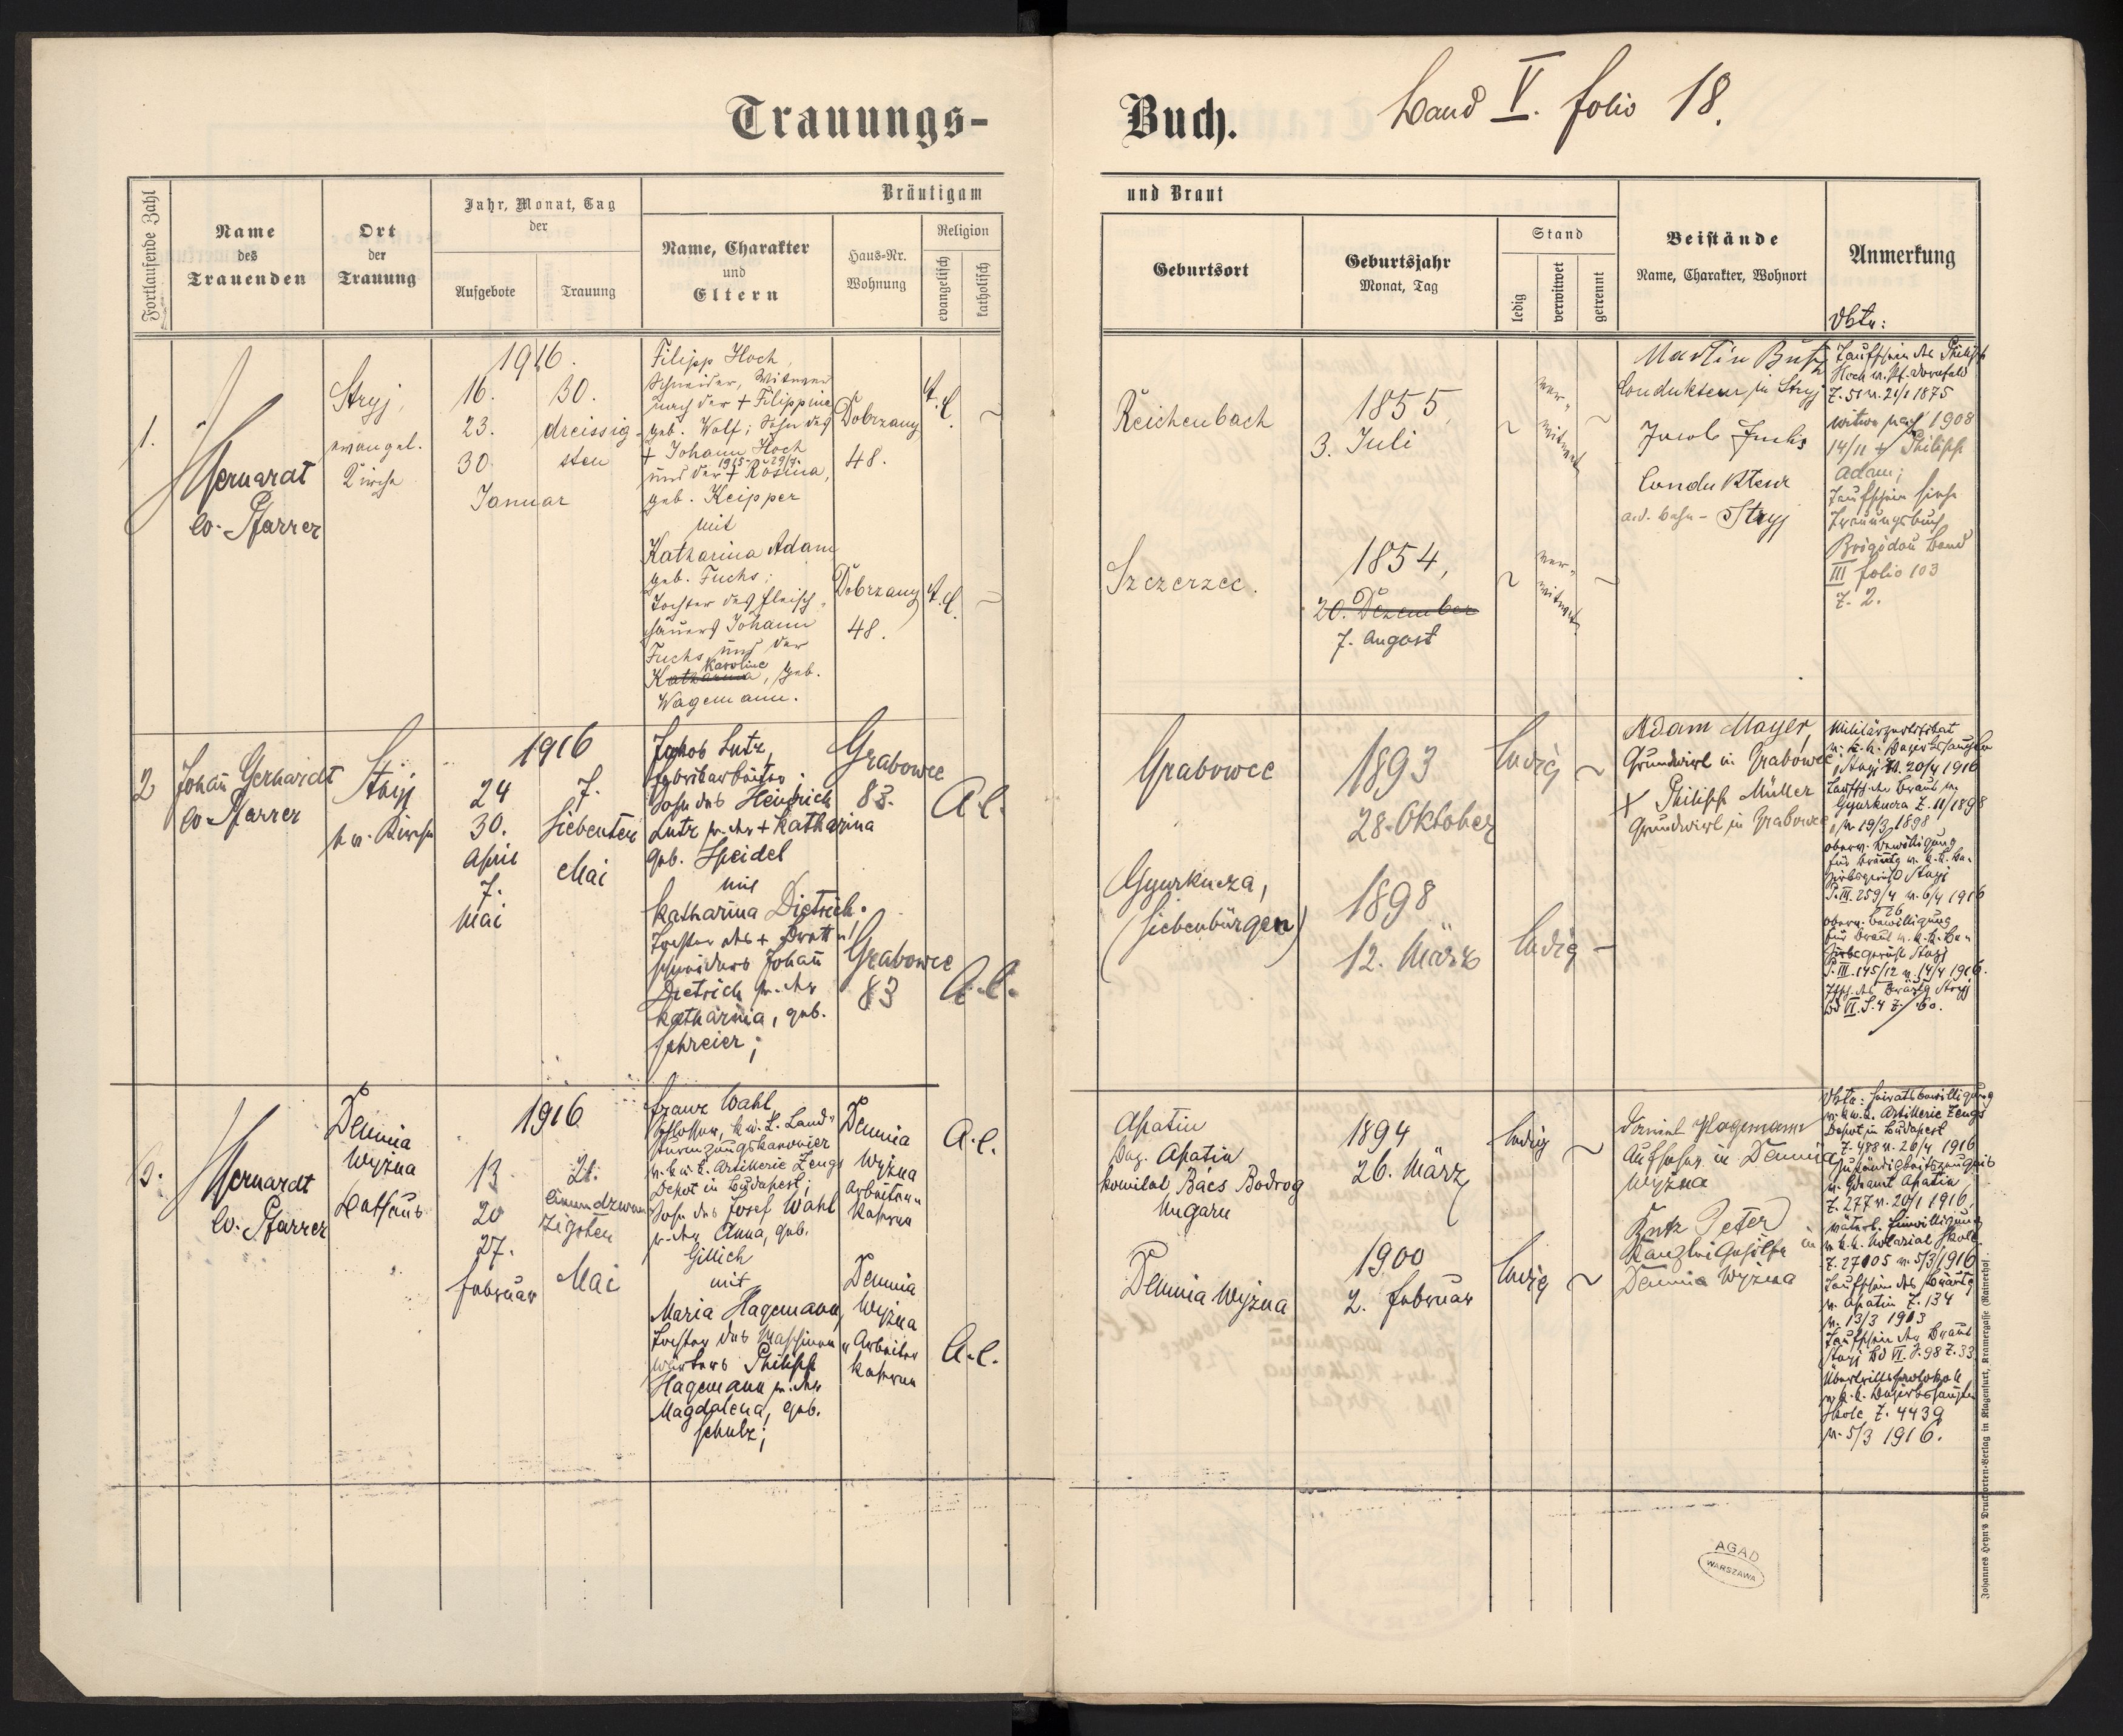 Trauungs-
Buch.
Band V. folio 18.
Fortlaufende Zahl
Name
des
Trauenden
Ort
der
Trauung
Jahr, Monat, Tag
der
Aufgebote
Trauung
Bräutigam
Name, Charakter
und
Eltern
Haus-Nr.
Wohnung
Religion
evangelisch
katholisch
und Braut
Geburtsort
Geburtsjahr
Monat, Tag
Stand
ledig
verwitwet
getrennt
Beistände
Name, Charakter, Wohnort
Anmerkung
1.
ev. Pfarrer
Stryj,
evangel.
Kirche
1916.
16.
23.
30.
30.
dreissig-
sten
Januar
Filipp Hoch,
Schneider, Witwer
nach der + Filippina
geb. Wolf; Sohn des
+ Johann Hoch
und der + Rosina,
geb. Keipper
mit
Katharina Adam
geb. Fuchs;
Tochter des Fleisch-
hauers Johann
Fuchs und der
Karoline
Katharina, geb.
Wagemann.
Dobrzany
48.
A.C.
Dobrzany
48.
A.C.
Reichenbach
1855
3. Juli
ver-
witwet
Szczerzec.
1854,
20. Dezember
7. August
ver-
witwet
Martin
Condukteur in Stryj
Jacob Fuchs
Condukteur
Stryj
Taufschein des Philipp
Hoch v. Pf. Dornfeld
Z. 51 v. 21/1 1875
Witwe nach 1908
14/11 + Philipp
Adam;
Taufschein siehe
Trauungsbuch
Brigidau Band
III folio 103
Z. 2.
2
Johañ Gerhardt
ev. Pfarrer
Stryj
ev. Kirche
1916
24
30.
April
7.
Mai
7.
Siebenten
Mai
Jakob Lutz,
Fabrikarbeiter;
Sohn des Heinrich
Lutz u. der + Katharina
geb. Speidel
mit
Katharina Dietrich.
Tochter des + Brett-
schneiders Johañ
Dietrich u. der
Katharina, geb.
Schreier;
Grabowce
83.
A.C.
Grabowce
83
A.C.
Grabowce
1893
28. Oktober
ledig
Gyurkucza,
(Siebenbürgen)
1898
12. März
ledig
Adam Mayer,
Grundwirt in Grabowce
Philipp Müller
Grundwirt in Grabowce
Stryj 20/4 1916
Gyurkucza Z. 11/1898
v. 19/3 1898
oberv. Bewilligung
P. III. 259/4 v. 6/4 1916
oberv. Bewilligung
P. III. 145/12 v. 14/4 1916.
Bd VI. S. 4 Z. 60.
3.
ev. Pfarrer
Demnia
Wyżna
Bethaus
1916
13
20
27.
Februar
21.
Einundzwan
zigsten
Mai
Franz Wahl
Schlosser, k. u. k. Land-
sturmzugskanonier
v. k. u. k. Artillerie Zeugs
Depot in Budapest;
Sohn des Josef Wahl
u. der Anna, geb.
Gillich
mit
Maria Hagemann,
Tochter des Maschinen
wärters Philipp
Hagemann u. der
Magdalena, geb.
Schulz;
Demnia
Wyżna
Arbeiter-
Kaserne
A.C.
Demnia
Wyżna
Arbeiter
Kaserne
A.C.
Apatin
Bez. Apatin
Komitat Bács Bodrog
Ungarn
1894
26. März
ledig
Demnia Wyżna
1900
2. Februar
ledig
Daniel Hagemann
Aufseher in Demnia
Wyżna
Peter
Kanzleigehilfe in
Demnia Wyżna
v. k. u. k. Artillerie Zeugs
Depot in Budapest
Z. 488 v. 26/4 1916
Zuständigkeitszeugnis
Apatin
Z. 277 v. 20/1 1916
väterl. Einwilligung
v. k. k. Notariat Skole
Z. 27005 v. 5/3 1916
Taufschein des Bräutig
v. Apatin Z. 134
v. 13/3 1903
Taufschein der Braut
Stryj Bd VI. S. 98 Z. 33
Übertrittsprotokoll
Skole Z. 4439
v. 5/3 1916.
AGAD
WARSZAWA
Johannes Heyn's Drucksorten-Verlag in Klagenfurt, Kramergasse (Rainerhof